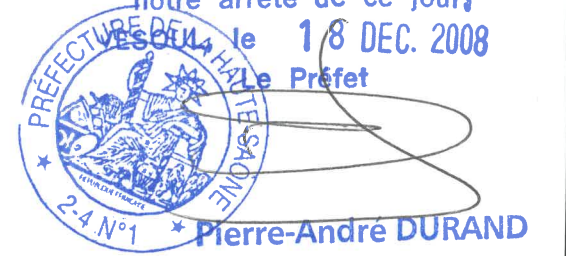 notre arrêté de ce jour,
VESOUL, le 18 DEC. 2008
Le Préfet
PRÉFECTURE DE LA HAUTE-SAONE
RÉPUBLIQUE FRANÇAISE
2-4 N°1
Pierre-André DURAND